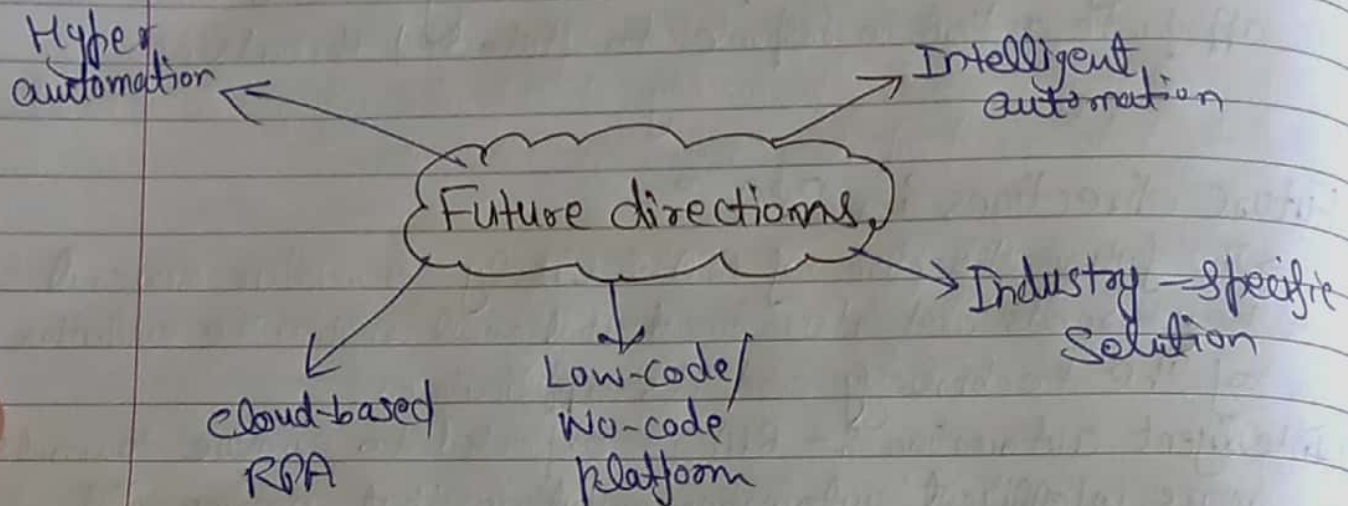 Hyper
automation
Intelligent
automation
Future directions
Industry-specific
Solution
cloud-based
RPA
Low-code/
No-code
platform